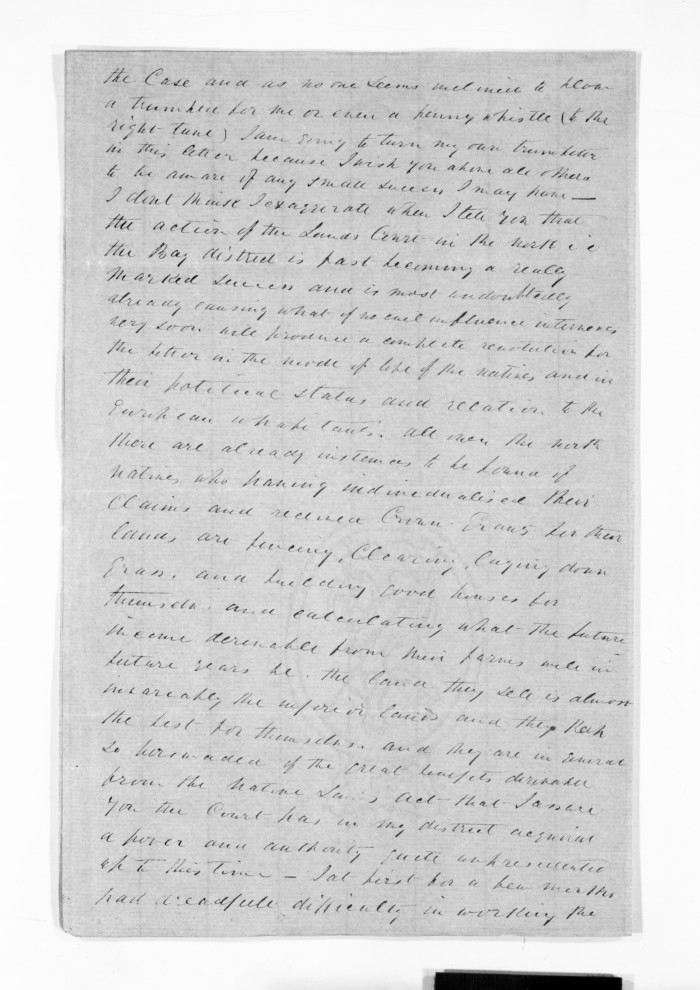 the Case and as no one seems inclined to blow
a trumpet for me or even a penny whistle (to the
right tune) I am going to turn my own trumpeter
in this letter because I wish you above all others
to be aware of any small success I may have —
I dont think I exagerate when I tell you that
the action of the Lands Court in the north i e
the Bay district is fast becoming a really
Marked success and is most undoubtedly
already causing what if no evil influence intervenes
very soon will produce a complete revolution for
the better in the mode of life of the natives and in
their political status and relation to the
European inhabitants. all over the north
there are already instances to be found of
Natives who having individualised their
Claims and received Crown Grants for their
lands are fencing, Clearing, laying down
Grass, and building good houses for
themselves and calculating what the future
income derivable from their farms will in
future years be. the land they sell is almost
invariably the inferior lands and they Keep
the best for themselves. and they are in general
so persuaded of the great benefits derivable
from the Native Lands Act that I assure
you the Court has in my district acquired
a power and authority quite unprecedented
up to this time — I at first for a few months
had dreadfull difficulty in working the